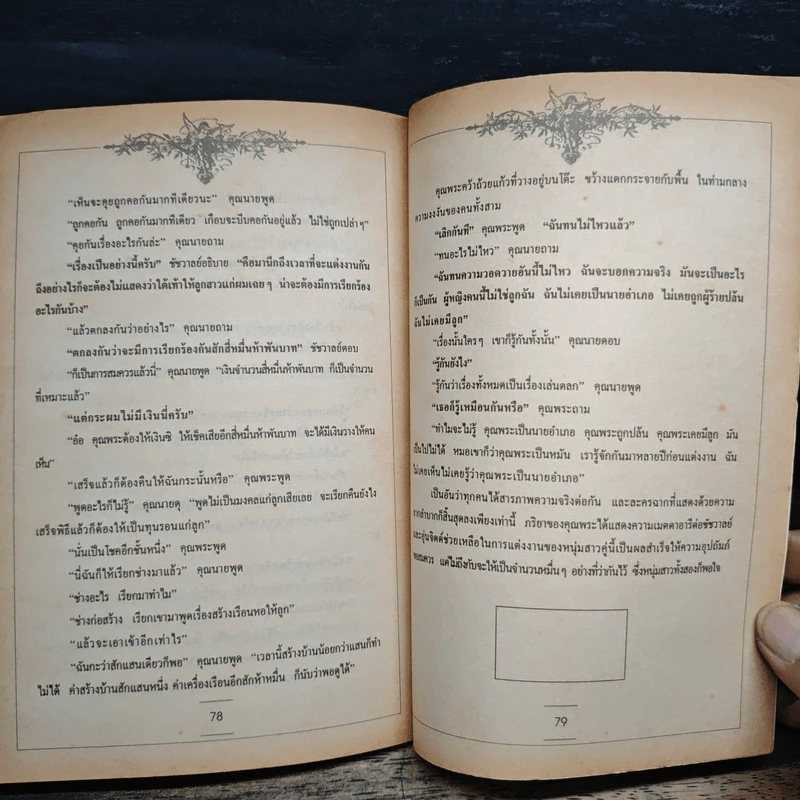 “เห็นจะคุยถูกคอกันมากทีเดียวนะ” คุณนายพูด
“ถูกคอกัน ถูกคอกันมากทีเดียว เกือบจะบีบคอกันอยู่แล้ว ไม่ใช่ถูกเปล่าๆ”
“คุยกันเรื่องอะไรกันล่ะ” คุณนายถาม
“เรื่องเป็นอย่างนี้ครับ” ชัชวาลย์อธิบาย “คือมานึกถึงเวลาที่จะแต่งงานกัน
ถึงอย่างไรก็จะต้องไม่แสดงว่าใต้เท้าให้ลูกสาวแก่ผมเฉยๆ น่าจะต้องมีการเรียกร้อง
อะไรกันบ้าง”
“แล้วตกลงกันว่าอย่างไร” คุณนายถาม
“ตกลงกันว่าจะมีการเรียกร้องกันสักสี่หมื่นห้าพันบาท” ชัชวาลย์ตอบ
“ก็เป็นการสมควรแล้วนี่” คุณนายพูด “เงินจำนวนสี่หมื่นห้าพันบาท ก็เป็นจำนวน
ที่เหมาะแล้ว”
“แต่กระผมไม่มีเงินนี่ครับ”
“อ๋อ คุณพระต้องให้เงินซิ ให้เช็คเสียอีกสี่หมื่นห้าพันบาท จะได้มีเงินวางให้คน
เห็น”
“เสร็จแล้วก็ต้องคืนให้ฉันกระนั้นหรือ” คุณพระพูด
“พูดอะไรก็ไม่รู้” คุณนายดุ “พูดไม่เป็นมงคลแก่ลูกเสียเลย จะเรียกคืนยังไง
เสร็จพิธีแล้วก็ต้องให้เป็นทุนรอนแก่ลูก”
“นั่นเป็นโชคอีกชั้นหนึ่ง” คุณพระพูด
“นี่ฉันก็ให้เรียกช่างมาแล้ว” คุณนายพูด
“ช่างอะไร เรียกมาทำไม”
“ช่างก่อสร้าง เรียกเขามาพูดเรื่องสร้างเรือนหอให้ลูก”
“แล้วจะเอาเข้าอีกเท่าไร”
“ฉันกะว่าสักแสนเดียวก็พอ” คุณนายพูด “เวลานี้สร้างบ้านน้อยกว่าแสนก็ทำ
ไม่ได้ ค่าสร้างบ้านสักแสนหนึ่ง ค่าเครื่องเรือนอีกสักห้าหมื่น ก็นับว่าพอดูได้”
78
คุณพระคว้าถ้วยแก้วที่วางอยู่บนโต๊ะ ขว้างแตกกระจายกับพื้น ในท่ามกลาง
ความงงงันของคนทั้งสาม
“เลิกกันที” คุณพระพูด “ฉันทนไม่ไหวแล้ว”
“ทนอะไรไม่ไหว” คุณนายถาม
“ฉันทนความวอดวายอันนี้ไม่ไหว ฉันจะบอกความจริง มันจะเป็นอะไร
ก็เป็นกัน ผู้หญิงคนนี้ไม่ใช่ลูกฉัน ฉันไม่เคยเป็นนายอำเภอ ไม่เคยถูกผู้ร้ายปล้น
ฉันไม่เคยมีลูก”
“เรื่องนั้นใครๆ เขาก็รู้กันทั้งนั้น” คุณนายตอบ
“รู้กันยังไง”
“รู้กันว่าเรื่องทั้งหมดเป็นเรื่องเล่นตลก” คุณนายพูด
“เธอก็รู้เหมือนกันหรือ” คุณพระถาม
“ทำไมจะไม่รู้ คุณพระเป็นนายอำเภอ คุณพระถูกปล้น คุณพระเคยมีลูก มัน
เป็นไปไม่ได้ หมอเขาก็ว่าคุณพระเป็นหมัน เรารู้จักกันมาหลายปีก่อนแต่งงาน ฉัน
ไม่เคยเห็นไม่เคยรู้ว่าคุณพระเป็นนายอำเภอ”
เป็นอันว่าทุกคนได้สารภาพความจริงต่อกัน และละครฉากที่แสดงด้วยความ
ยากลำบากก็สิ้นสุดลงเพียงเท่านี้ ภริยาของคุณพระได้แสดงความเมตตาอารีต่อชัชวาลย์
และอุ่นจิตต์ช่วยเหลือในการแต่งงานของหนุ่มสาวคู่นี้เป็นผลสำเร็จให้ความอุปถัมภ์
พอสมควร แต่ไม่ถึงกับจะให้เป็นจำนวนหมื่นๆ อย่างที่ว่ากันไว้ ซึ่งหนุ่มสาวทั้งสองก็พอใจ
79